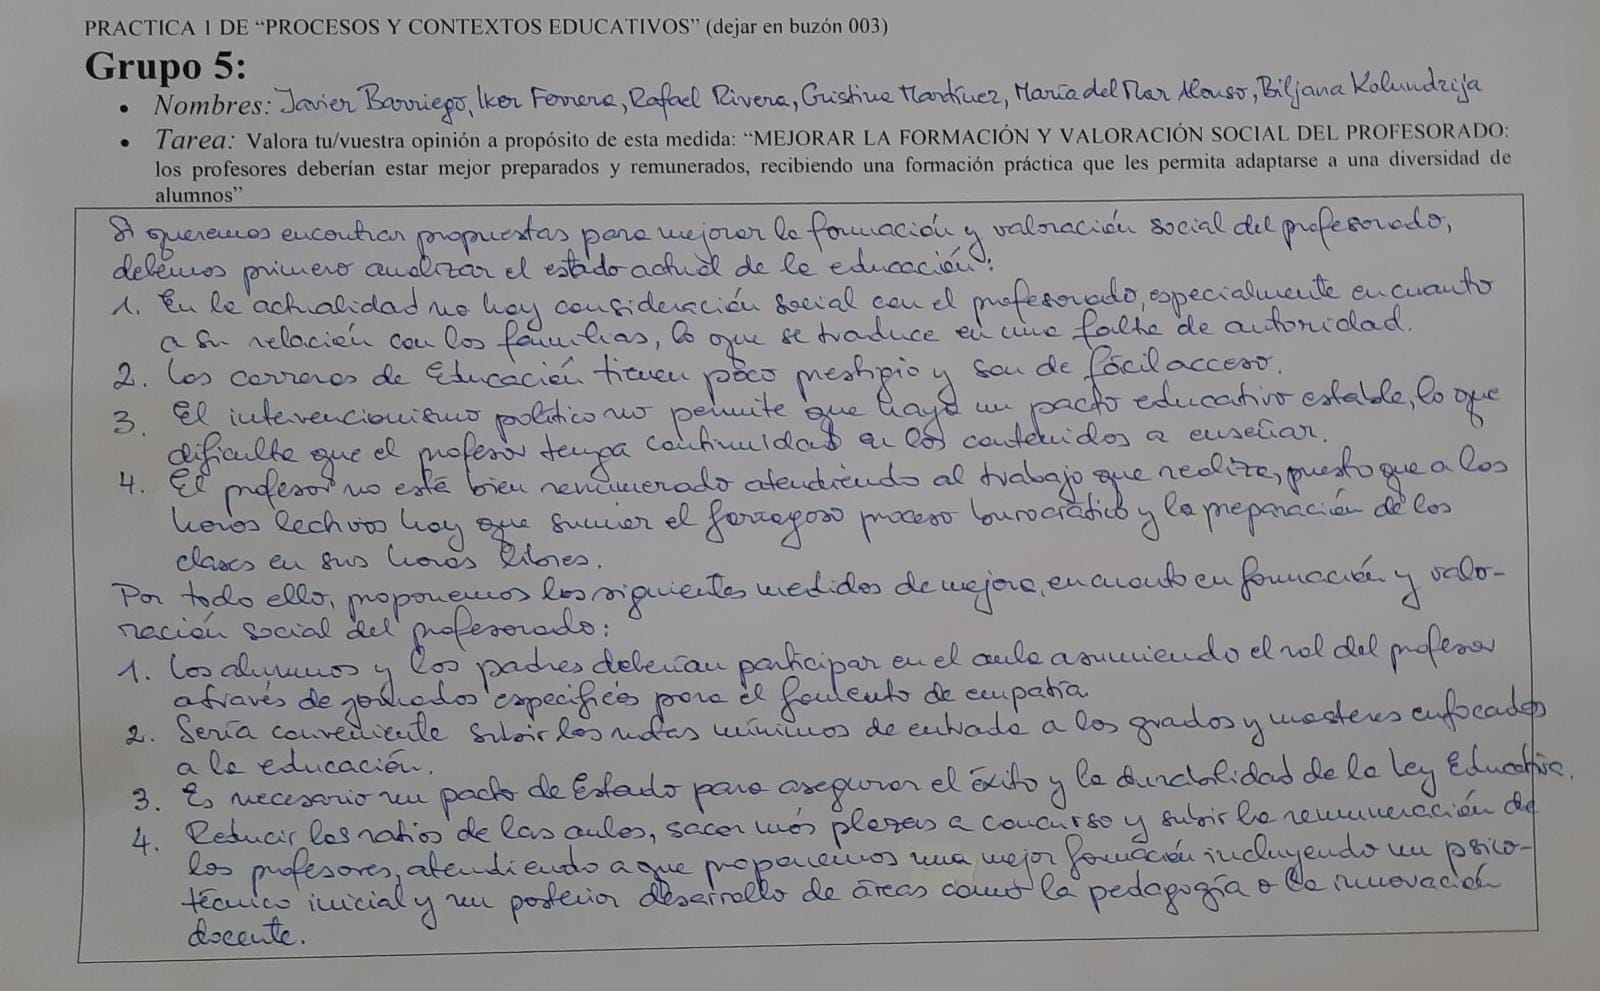 PRACTICA 1 DE “PROCESOS Y CONTEXTOS EDUCATIVOS” (dejar en buzón 003)
Grupo 5:
• Nombres: Javier Barriego, Iker Ferrera, Rafael Rivera, Cristina Martínez, María del Mar Alonso, Biljana Kolundzija
• Tarea: Valora tu/vuestra opinión a propósito de esta medida: “MEJORAR LA FORMACIÓN Y VALORACIÓN SOCIAL DEL PROFESORADO:
los profesores deberían estar mejor preparados y remunerados, recibiendo una formación práctica que les permita adaptarse a una diversidad de
alumnos”
Si queremos encontrar propuestas para mejorar la formación y valoración social del profesorado,
debemos primero analizar el estado actual de la educación:
1. En la actualidad no hay consideración social con el profesorado, especialmente en cuanto
a su relación con las familias, lo que se traduce en una falta de autoridad.
2. Las carreras de Educación tienen poco prestigio y son de fácil acceso.
3. El intervencionismo político no permite que haya un pacto educativo estable, lo que
dificulta que el profesor tenga continuidad en los contenidos a enseñar.
4. El profesor no está bien remunerado atendiendo al trabajo que realiza, puesto que a las
horas lectivas hay que sumar el farragoso proceso burocrático y la preparación de las
clases en sus horas libres.
Por todo ello, proponemos las siguientes medidas de mejora, en cuanto en formación y valo-
ración social del profesorado:
1. Los alumnos y los padres deberían participar en el aula asumiendo el rol del profesor
a través de jornadas específicas para el fomento de empatía.
2. Sería conveniente subir las notas mínimas de entrada a los grados y masteres enfocados
a la educación.
3. Es necesario un pacto de Estado para asegurar el éxito y la durabilidad de la Ley Educativa.
4. Reducir las ratios de las aulas, sacar más plazas a concurso y subir la remuneración de
los profesores, atendiendo a que proponemos una mejor formación incluyendo un psico-
técnico inicial y un posterior desarrollo de áreas como la pedagogía o la innovación
docente.